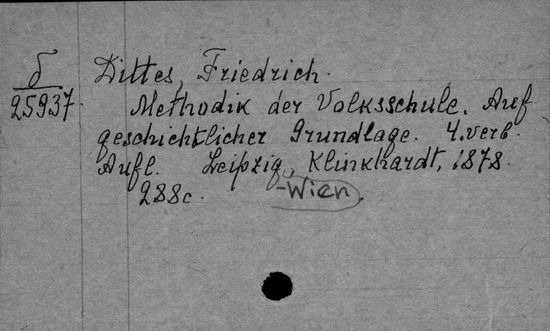 δ
25937.
Dittes, Friedrich.
Methodik der Volksschule. Auf
geschichtlicher Grundlage. 4.verb.
Aufl. Leipzig, Klinkhardt, 1878.
288c. -Wien.